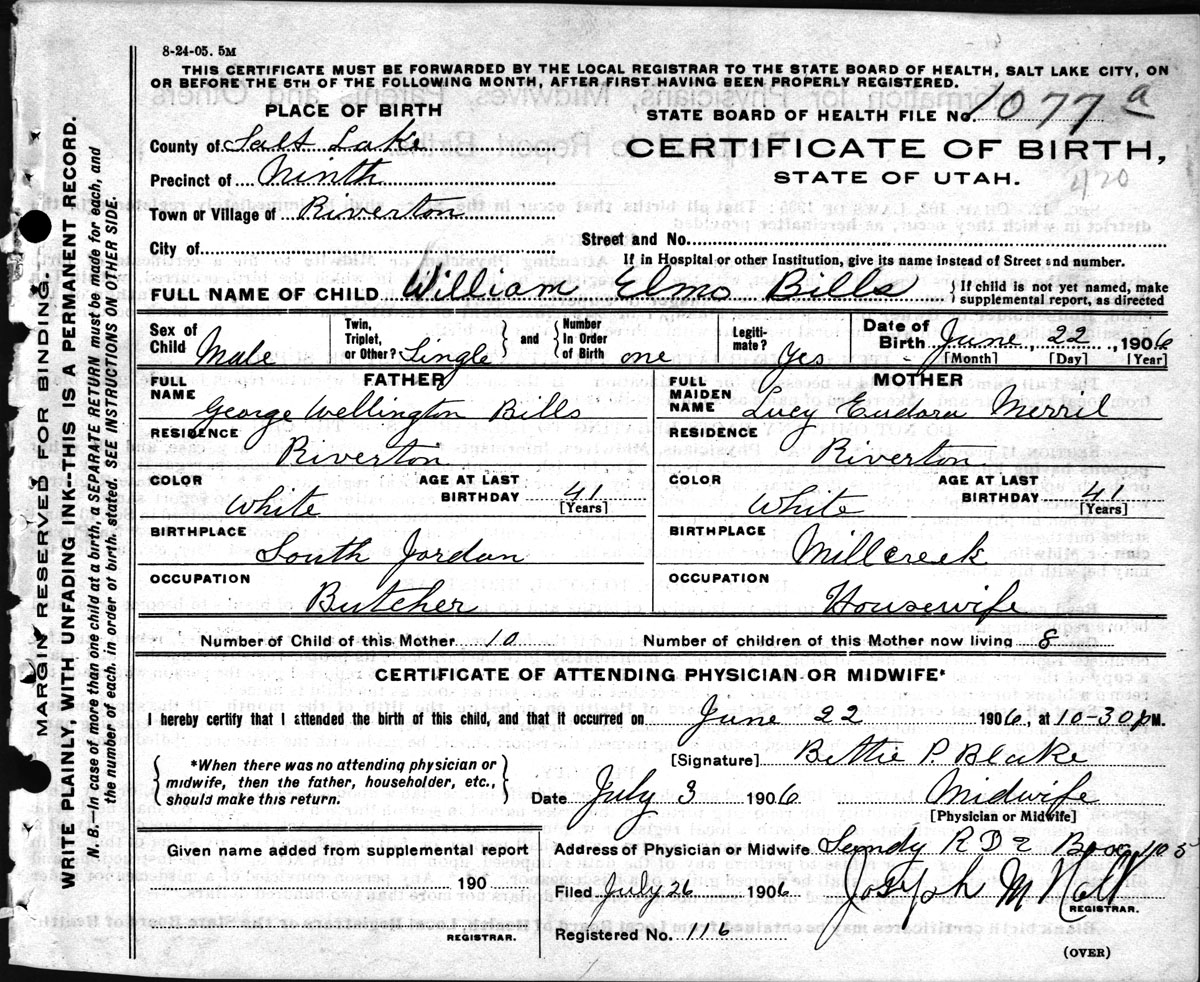 8-24-05. 5M
THIS CERTIFICATE MUST BE FORWARDED BY THE LOCAL REGISTRAR TO THE STATE BOARD OF HEALTH, SALT LAKE CITY, ON
OR BEFORE THE 5TH OF THE FOLLOWING MONTH, AFTER FIRST HAVING BEEN PROPERLY REGISTERED.
PLACE OF BIRTH
STATE BOARD OF HEALTH FILE No. 1077 a
County of Salt Lake
CERTIFICATE OF BIRTH,
Precinct of Ninth
STATE OF UTAH.
420
Town or Village of Riverton
City of
Street and No.
If in Hospital or other Institution, give its name instead of Street and number.
FULL NAME OF CHILD William Elmo Bills { If child is not yet named, make supplemental report, as directed
Sex of Child Male Twin, Triplet, or Other? Single } and { Number In Order of Birth one Legiti- mate? Yes Date of Birth June 22, 1906
[Month] [Day] [Year]
FATHER
FULL NAME George Wellington Bills
RESIDENCE Riverton
COLOR White AGE AT LAST BIRTHDAY 41 [Years]
BIRTHPLACE South Jordan
OCCUPATION Butcher
MOTHER
FULL MAIDEN NAME Lucy Eudora Merril
RESIDENCE Riverton
COLOR White AGE AT LAST BIRTHDAY 41 [Years]
BIRTHPLACE Millcreek
OCCUPATION Housewife
Number of Child of this Mother 10 Number of children of this Mother now living 8
CERTIFICATE OF ATTENDING PHYSICIAN OR MIDWIFE*
I hereby certify that I attended the birth of this child, and that it occurred on June 22 1906, at 10-30 p M.
{ *When there was no attending physician or
midwife, then the father, householder, etc.,
should make this return. }
[Signature] Bettie P. Blake
Date July 3 1906 Midwife
[Physician or Midwife]
Given name added from supplemental report
190
REGISTRAR.
Address of Physician or Midwife R D 2 105
Filed July 26 1906 Joseph M Holt
REGISTRAR.
Registered No. 116
(OVER)
MARGIN RESERVED FOR BINDING.
WRITE PLAINLY, WITH UNFADING INK--THIS IS A PERMANENT RECORD.
N. B.—In case of more than one child at a birth, a SEPARATE RETURN must be made for each, and
the number of each, in order of birth, stated. SEE INSTRUCTIONS ON OTHER SIDE.